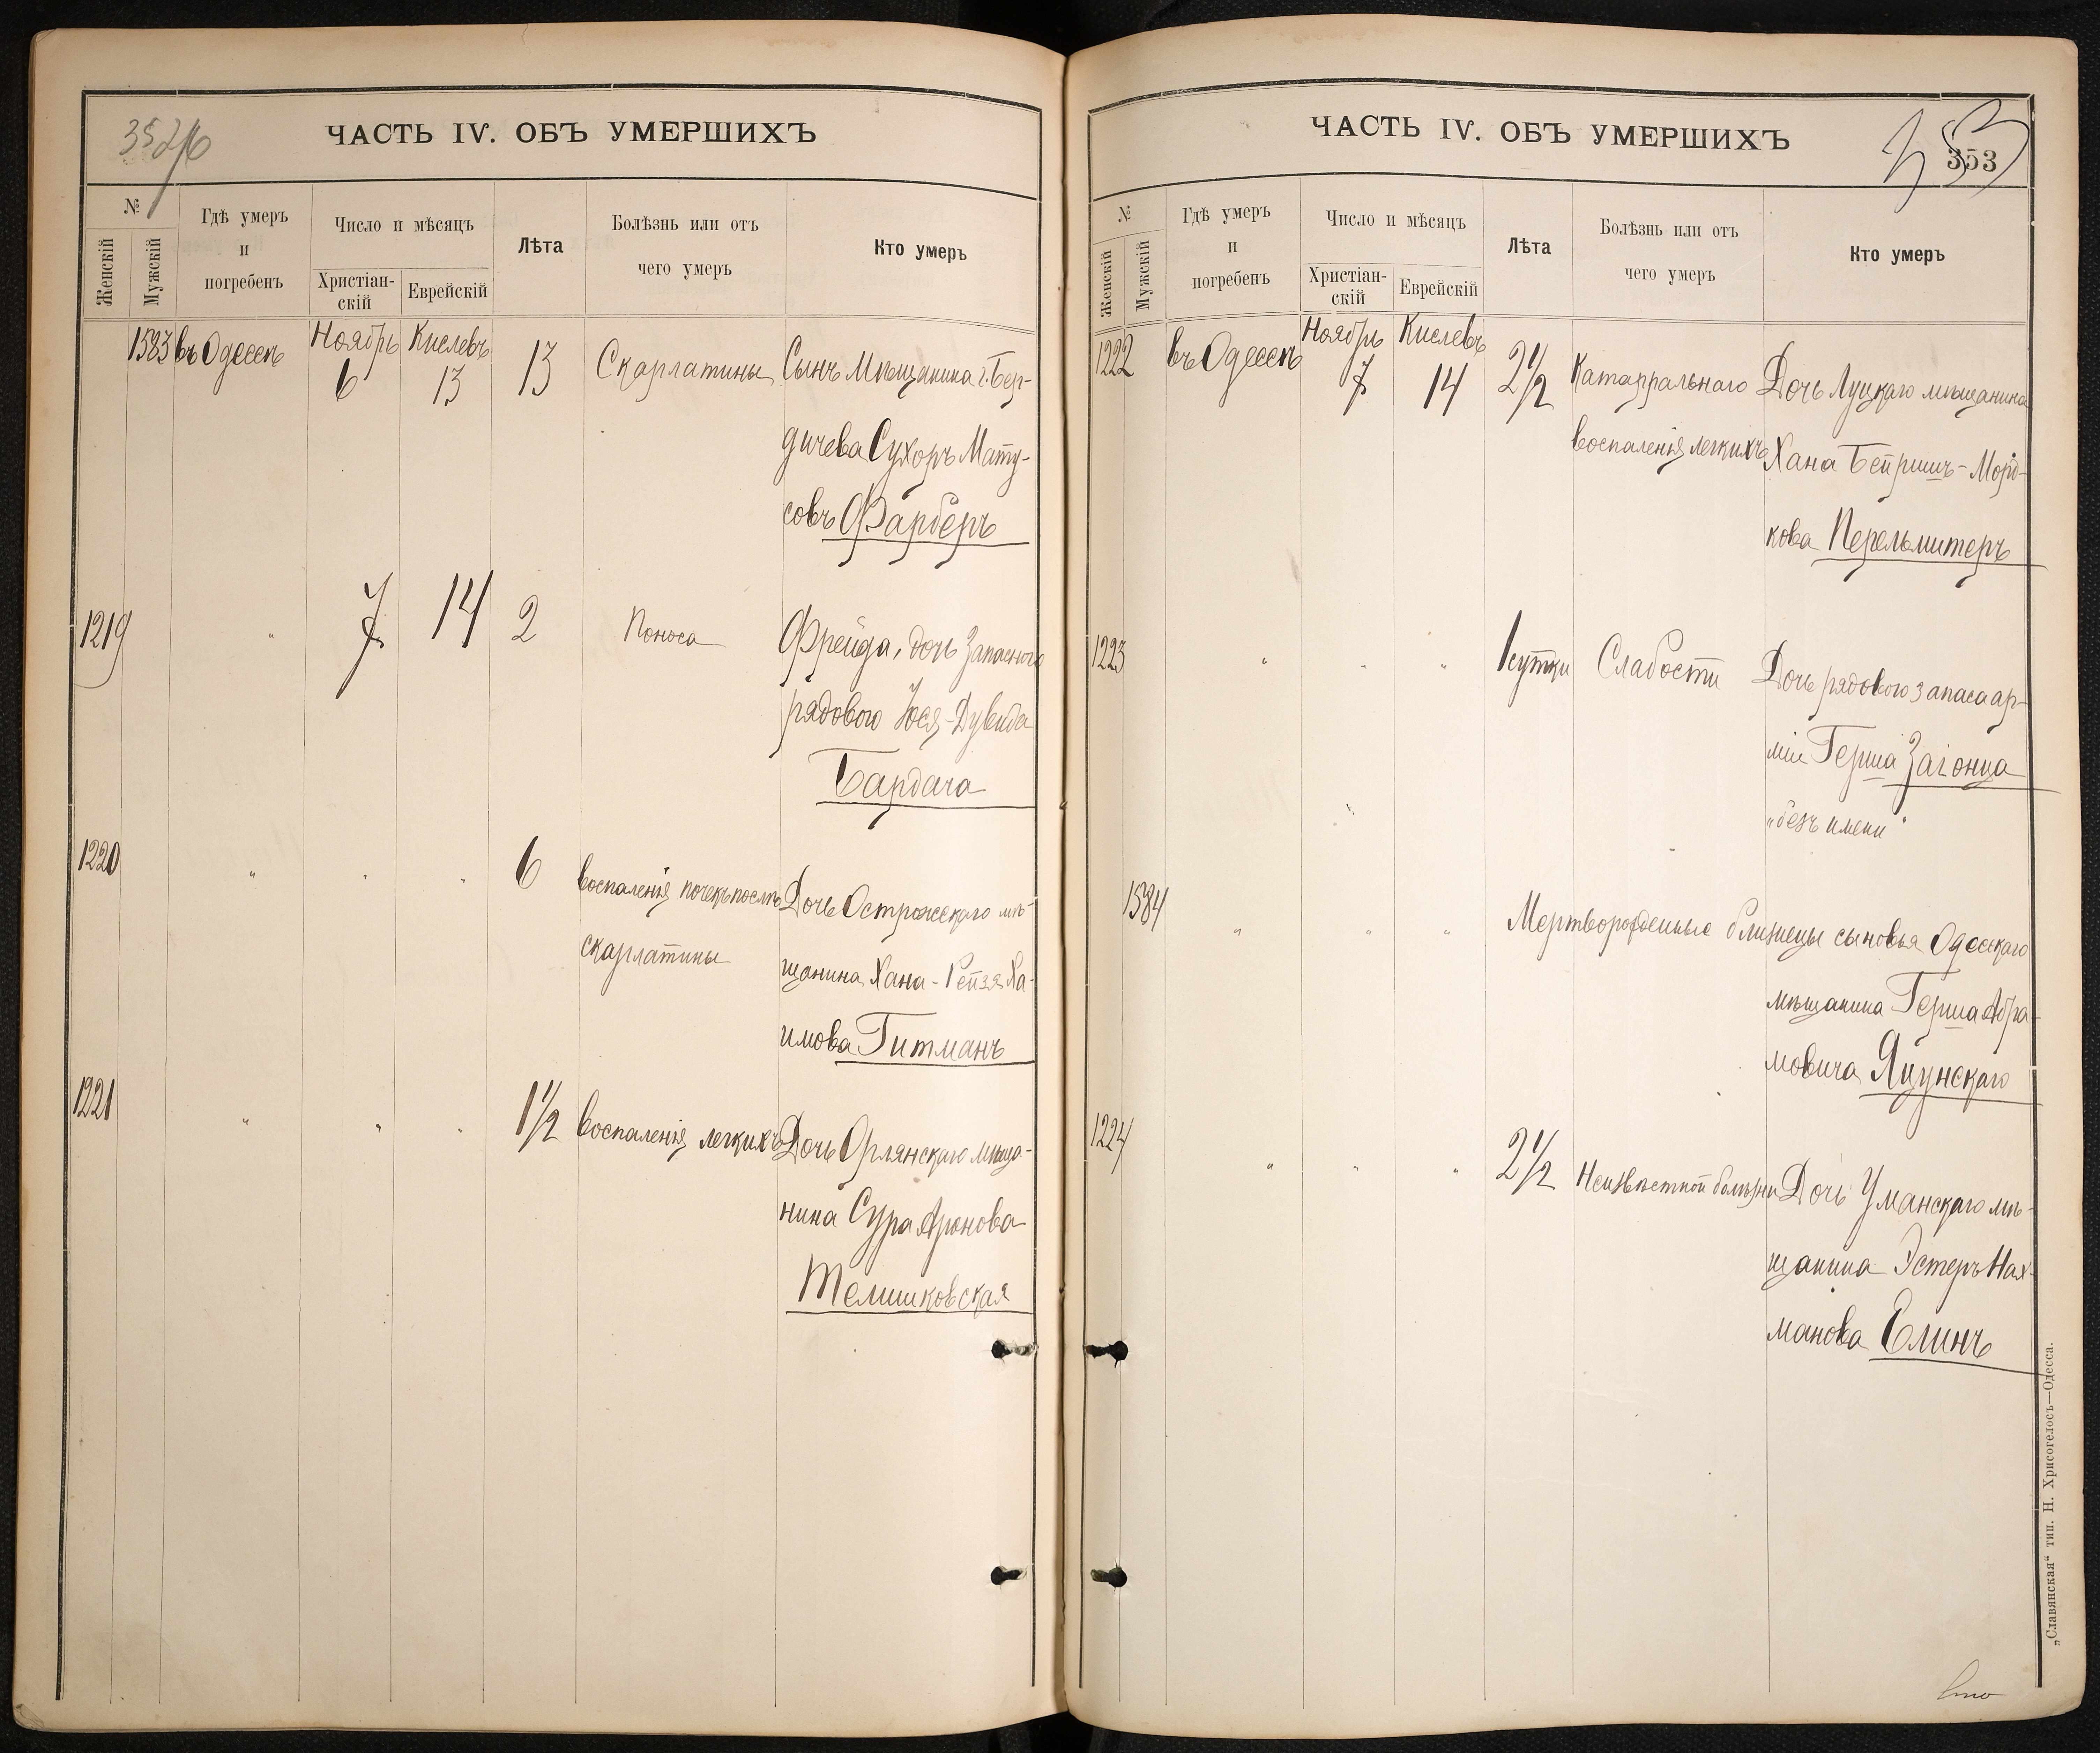 352/об
ЧАСТЬ IV. ОБЪ УМЕРШИХЪ
№
Женскій
Мужскій
Гдѣ умеръ
и
погребенъ
Число и мѣсяцъ
Христіан-
скій
Еврейскій
Лѣта
Болѣзнь или отъ
чего умеръ
Кто умеръ
1583 въ Одессѣ Ноябрь 6 Кислевъ 13 13 Скарлатины Сынъ Мѣщанина г. Бер-
дичева Сухоръ Мату-
совъ Фарберъ
1219 " 7 14 2 Поноса Фрейда, дочь Запасного
рядового Іося-Дувида
Бардача
1220 " " " 6 воспаленія почекъ послѣ Дочь Острожскаго мѣ-
скарлатины щанина Хана-Рейзя Ха-
имова Гитманъ
1221 " " " 1 1/2 воспаленія легкихъ Дочь Орлянскаго мѣща-
нина Сура Аронова
Телишковская
ЧАСТЬ IV. ОБЪ УМЕРШИХЪ
353
353
№
Женскій
Мужскій
Гдѣ умеръ
и
погребенъ
Число и мѣсяцъ
Христіан-
скій
Еврейскій
Лѣта
Болѣзнь или отъ
чего умеръ
Кто умеръ
1222 въ Одессѣ Ноябрь 7 Кислевъ 14 2 1/2 Катарральнаго Дочь Луцкаго мѣщанина
воспаленія легкихъ Хана Бейришъ-Морд-
кова Перельмитеръ
1223 " " " 1 сутки Слабости Дочь рядового запаса ар-
міи Герша Загонца
"безъ имени"
1584 " " " Мертворожденные близнецы сыновья Одесскаго
мѣщанина Герша Абра-
мовича Яцунскаго
1224 " " " 2 1/2 Неизвѣстной болѣзни Дочь Уманскаго мѣ-
щанина Эстеръ Нах-
манова Елинъ
„Славянская“ тип. Н. Хрисогелосъ—Одесса.